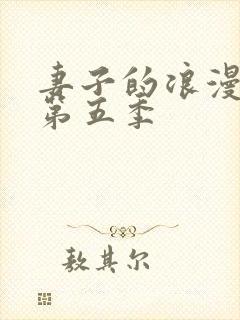 妻子的浪漫
第五季
敖其尔